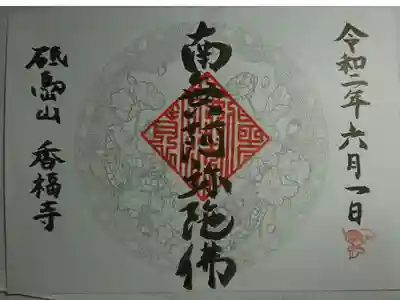 令和二年六月一日
南無阿弥陀佛
山 香福寺